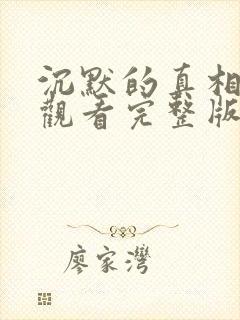 沉默的真相
觀看完整版
廖家灣